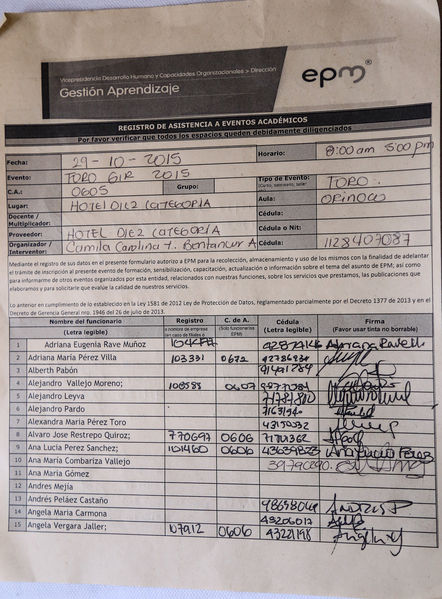 Vicepresidencia Desarrollo Humano y Capacidades Organizacionales > Dirección
Gestión Aprendizaje
epm®
REGISTRO DE ASISTENCIA A EVENTOS ACADÉMICOS
Por favor verificar que todos los espacios queden debidamente diligenciados
Fecha: 29-10-2015 Horario: 8:00am 5:00pm
Evento: TORO 6IR 2015 Tipo de Evento: TORO.
C.A.: 0605 Grupo: Aula: ORINOCO
Lugar: HOTEL DIEZ CATEGORIA
Docente / Multiplicador: Cédula:
Proveedor: HOTEL DIEZ CATEGORIA Cédula o Nit:
Organizador / Interventor: Camila Carolina T. Bentancur A Cédula: 1128407087
Mediante el registro de sus datos en el presente formulario autorizo a EPM para la recolección, almacenamiento y uso de los mismos con la finalidad de adelantar
el trámite de inscripción al presente evento de formación, sensibilización, capacitación, actualización o información sobre el tema del asunto de EPM; así como
para informarme de otros eventos organizados por esta entidad, relacionados con nuestras funciones, sobre los servicios que prestamos, las publicaciones que
elaboramos y para solicitarle que evalúe la calidad de nuestros servicios.
Lo anterior en cumplimiento de lo establecido en la Ley 1581 de 2012 Ley de Protección de Datos, reglamentado parcialmente por el Decreto 1377 de 2013 y en el
Decreto de Gerencia General nro. 1946 del 26 de julio de 2013.
Nombre del funcionario (Letra legible) Registro C. de A. (Solo funcionarios EPM) Cédula (Letra legible) Firma (Favor usar tinta no borrable)
1 Adriana Eugenia Rave Muñoz
2 Adriana María Pérez Villa 103331 0672 42786934
3 Alberth Pabón
4 Alejandro Vallejo Moreno; 0607
5 Alejandro Leyva
6 Alejandro Pardo
7 Alexandra Maria Pérez Toro 43150032
8 Alvaro Jose Restrepo Quiroz; 770697 0606
9 Ana Lucia Perez Sanchez; 101460 0606 43639823 Ana Lucía Pérez
10 Ana Maria Combariza Vallejo
11 Ana Maria Gómez
12 Andres Mejía
13 Andrés Peláez Castaño
14 Angela Maria Carmona 43206017
15 Angela Vergara Jaller; 107912 0606 43221198